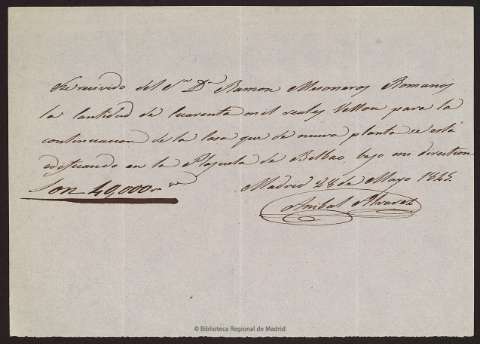 He recivido del Sor Dn Ramon Mesonero Romanos
la Cantidad de Cuarenta mil reales Vellon para la
continuacion de la Casa que de nueva planta se está
edificando en la Plazuela de Bilbao, bajo mi direccion
Madrid 28 de Mayo 1845.
Son 40,000 rvn
Anibal Alvarez
© Biblioteca Regional de Madrid